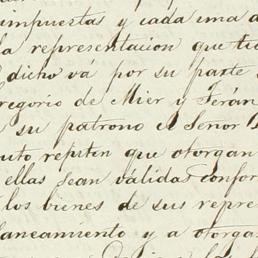 impuestas y cada una d
la representacion que tie
dicho vá por su parte
regorio de Mier y Terán
su patrono el Señor D
puten que otorgan
ellas sean válidas confor
los bienes de sus repre
lanceamiento y a otorga